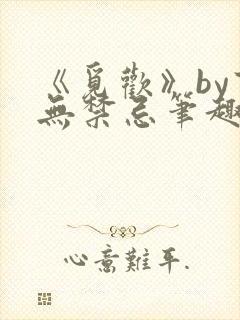 《觅歡》by
無禁忌筆趣
心意難平.